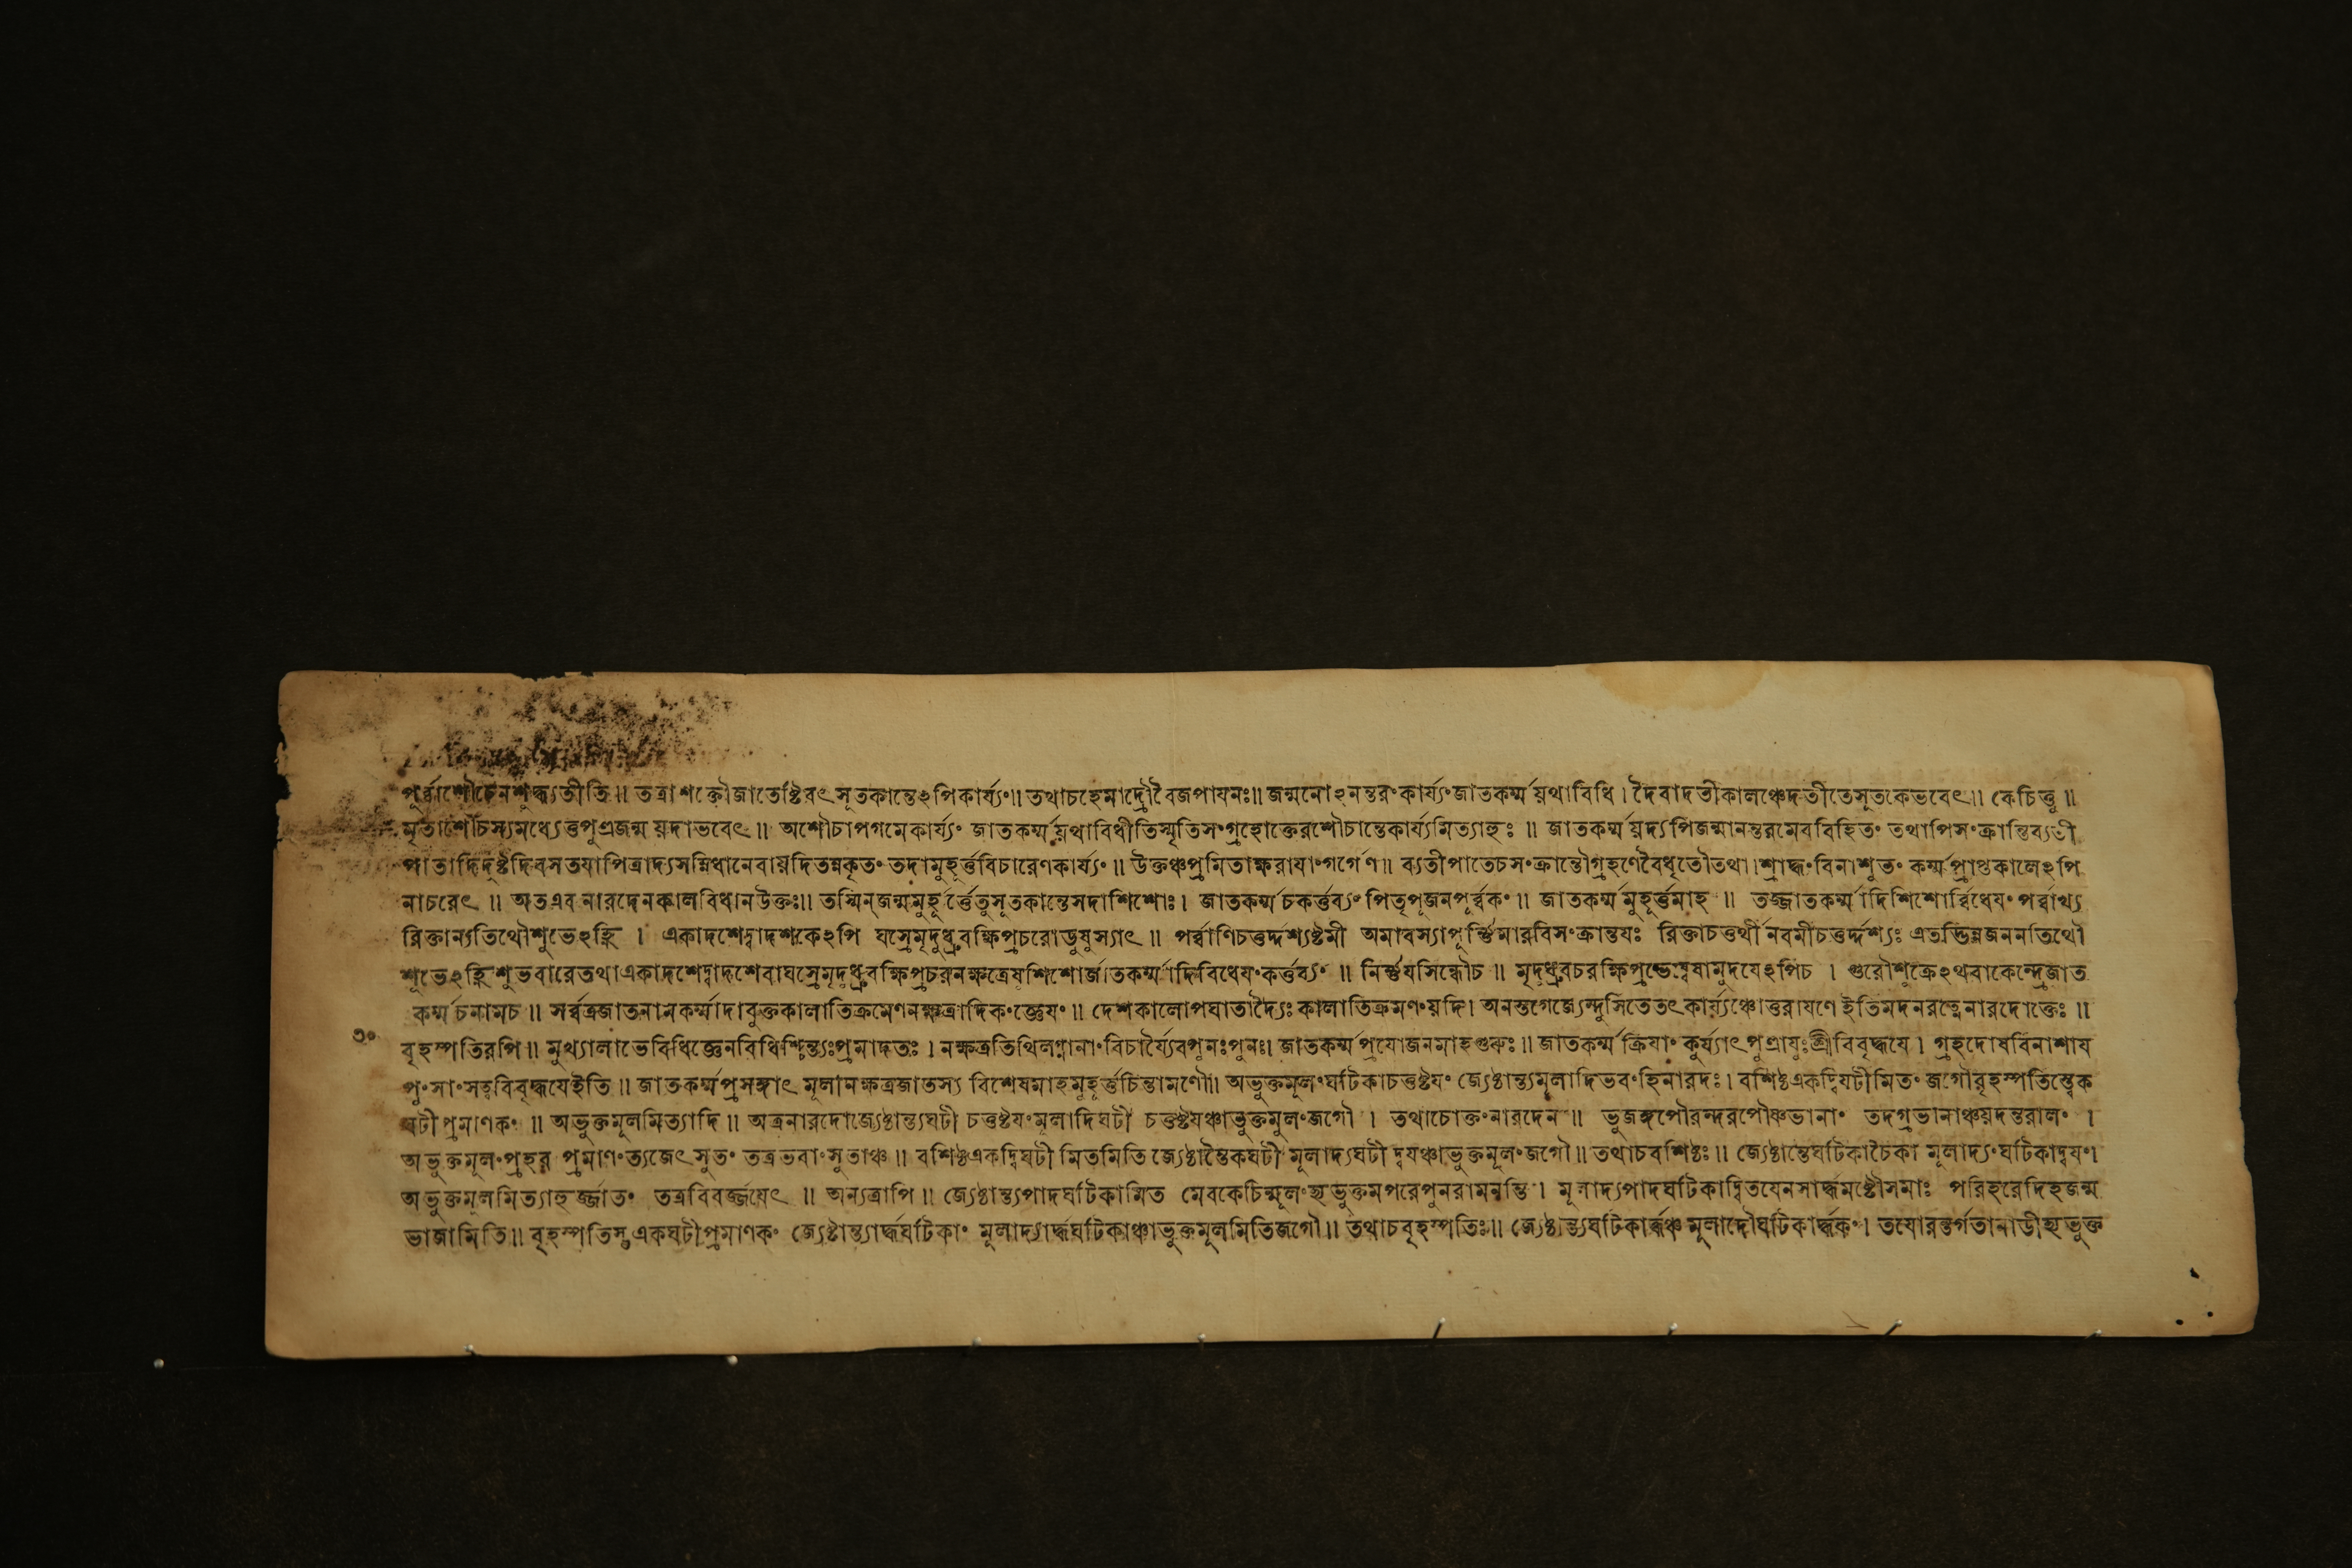 পূর্ব্বাশৌচেনশুদ্ধ্যতীতি॥ তত্রাশক্তৌজাতেষ্টিবৎসূতকান্তেঽপিকার্য্যং॥ তথাচহেমাদ্রৌবৈজপাযনঃ॥ জন্মনোঽনন্তরংকার্য্যংজাতকর্ম্মযথাবিধি। দৈবাদতীকালঞ্চেদতীতেসূতকেভবেৎ॥ কেচিত্তু॥
মৃতাশৌচস্যমধ্যেত্তপুত্রজন্ম যদাভবেৎ॥ অশৌচাপগমেকার্য্যং জাতকর্ম্মযথাবিধীতিস্মৃতিসংগ্রহোক্তেরশৌচান্তেকার্য্যমিত্যাহুঃ॥ জাতকর্ম্মযদ্যপিজন্মানন্তরমেববিহিতং তথাপিসংক্রান্তিব্যতী
পাতাদিদুষ্টদিবসতযাপিত্রাদ্যসন্নিধানেবাযদিতন্নকৃতং তদামুহূর্ত্তবিচারেণকার্য্যং॥ উক্তঞ্চপ্রমিতাক্ষরাযাংগর্গেণ॥ ব্যতীপাতেচসংক্রান্তৌগ্রহণেবৈধৃতৌতথা।শ্রাদ্ধংবিনাশুভং কর্ম্মপ্রাপ্তকালেঽপি
নাচরেৎ॥ অতএব নারদেনকালবিধানউক্তঃ॥ তস্মিন্জন্মমুহূর্ত্তেতুসূতকান্তেসদাশিশোঃ। জাতকর্ম্মচকর্ত্তব্যং পিতৃপূজনপূর্ব্বকং॥ জাতকর্ম্মমুহূর্ত্তমাহ॥ তজ্জাতকর্ম্মাদিশিশোর্ব্বিধেযং পর্ব্বাখ্য
রিক্তান্যতিথৌশুভেঽহ্নি। একাদশেদ্বাদশকেঽপি ঘস্রেমৃদুধ্রুবক্ষিপ্রচরোডুষুস্যাৎ॥ পর্ব্বাণিচত্তর্দ্দশ্যষ্টমী অমাবস্যাপূর্ন্নিমারবিসংক্রান্তযঃ রিক্তাচত্তর্থী নবমীচত্তর্দ্দশ্যঃ এতদ্ভিন্নজননতিথৌ
শুভেঽহ্নিশুভবারেতথাএকাদশেদ্বাদশেবাঘস্রেমৃদুধ্রুবক্ষিপ্রচরনক্ষত্রেষশিশোর্জাতকর্ম্মাদিবিধেযংকর্ত্তব্যং॥ নির্ন্নযসিন্ধৌচ॥ মৃদুধ্রুবচরক্ষিপ্রভেম্বেষামুদযেঽপিচ। গুরৌশুক্রেঽথবাকেন্দ্রেজাত
কর্ম্মচনামচ॥ সর্ব্বত্রজাতনামকর্ম্মাদাবুক্তকালাতিক্রমেণনক্ষত্রাদিকংজ্ঞেযং॥ দেশকালোপঘাতাদ্যৈঃকালাতিক্রমণংযদি। অনস্তগেজ্যেন্দুসিতেতৎকার্য্যঞ্চোত্তরাযণে ইতিমদনরত্নেনারদোক্তেঃ॥
৩০
বৃহস্পতিরপি॥ মুখ্যালাভেবিধিজ্ঞেনবিধিশ্চিন্ত্যঃপ্রমাদতঃ। নক্ষত্রতিথিলগ্নানাংবিচার্য্যৈবপুনঃপুনঃ। জাতকর্ম্মপ্রযোজনমাহগুরুঃ॥ জাতকর্ম্মক্রিযাং কুর্য্যাৎপুত্রাযুঃশ্রীবিবৃদ্ধযে। গ্রহদোষবিনাশায
পুংসাংসত্ববিবৃদ্ধযেইতি॥ জাতকর্ম্মপ্রসঙ্গাৎ মূলানক্ষত্রজাতস্য বিশেষমাহমুহূর্ত্তচিন্তামণৌ॥ অভুক্তমূলংঘটিকাচত্তষ্টযং জ্যেষ্ঠান্ত্যমূলাদিভবংহিনারদঃ। বশিষ্ঠএকদ্বিঘটীমিতং জগৌবৃহস্পতিস্ত্বেক
ঘটীপ্রমাণকং॥ অভুক্তমূলমিত্যাদি॥ অত্রনারদোজ্যেষ্ঠান্ত্যঘটী চত্তষ্টযংমূলাদিঘটী চত্তষ্টযঞ্চাভুক্তমূলংজগৌ। তথাচোক্তংনারদেন॥ ভুজঙ্গপৌরন্দরপৌষ্ণভানাং তদগ্রভানাঞ্চযদন্তরালং।
অভুক্তমূলংপ্রহর প্রমাণংত্যজেৎসুতং তত্রভবাংসুতাঞ্চ॥ বশিষ্ঠএকদ্বিঘটী মিতমিতি জ্যেষ্ঠান্তৈকঘটী মূলাদ্যঘটী দ্বযঞ্চাভুক্তমূলংজগৌ॥ তথাচবশিষ্ঠঃ॥ জ্যেষ্ঠান্তেঘটিকাচৈকা মূলাদ্যংঘটিকাদ্বযং।
অভুক্তমূলমিত্যাহুর্জ্জাতং তত্রবিবর্জ্জযেৎ॥ অন্যত্রাপি॥ জ্যেষ্ঠান্ত্যপাদঘটিকামিত মেবকেচিন্মূলংহ্যভুক্তমপরেপুনরামনন্তি। মূলাদ্যপাদঘটিকাদ্বিতযেনসার্দ্ধমষ্টৌসমাঃ পরিহরেদিহজন্ম
ভাজামিতি॥ বৃহস্পতিস্তুএকঘটীপ্রমাণকং জ্যেষ্ঠান্ত্যার্দ্ধঘটিকাং মূলাদ্যার্দ্ধঘটিকাঞ্চাভুক্তমূলমিতিজগৌ॥ তথাচবৃহস্পতিঃ॥ জ্যেষ্ঠান্ত্যঘটিকার্দ্ধঞ্চ মূলাদৌঘটিকার্দ্ধকং। তযোরন্তর্গতানাডীহ্যভুক্ত